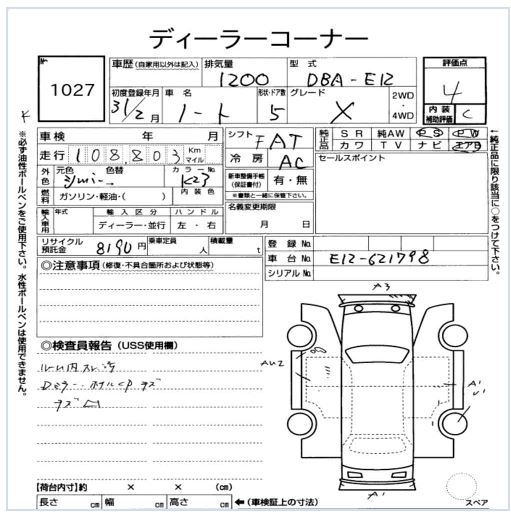 ディーラーコーナー
No. 1027
車歴(自家用以外は記入) 排気量 1200 型式 DBA-E12 評価点 4
初度登録年月 31/2月 車名 ノート 形状・ドア数 5 グレード X 2WD・4WD 内装補助評価 C
車検 年 月 シフト FAT 純正品 SR 純AW PS PW
走行 108,803 Km マイル 冷房 AC カワ TV ナビ エアB
外色 元色 色替 カラーNo. K23 新車整備手帳(保証書付) 有・無 セールスポイント
燃料 ガソリン・軽油・( ) 内装色 ※書類と一緒に保管下さい。
輸入車用 年式 輸入区分 ハンドル 名義変更期限
ディーラー・並行 左・右 月 日
リサイクル預託金 8190円 乗車定員 人 積載量 t 登録No.
車台No. E12-621798
シリアルNo.
◎注意事項(修復・不具合箇所および状態等)
◎検査員報告(USS使用欄)
【荷台内寸】約 × × (cm)
長さ cm 幅 cm 高さ cm ←(車検証上の寸法)
A3
AU2
A1
A1
スペア
※必ず油性ボールペンをご使用下さい。水性ボールペンは使用できません。
←純正品に限り該当に○をつけて下さい。